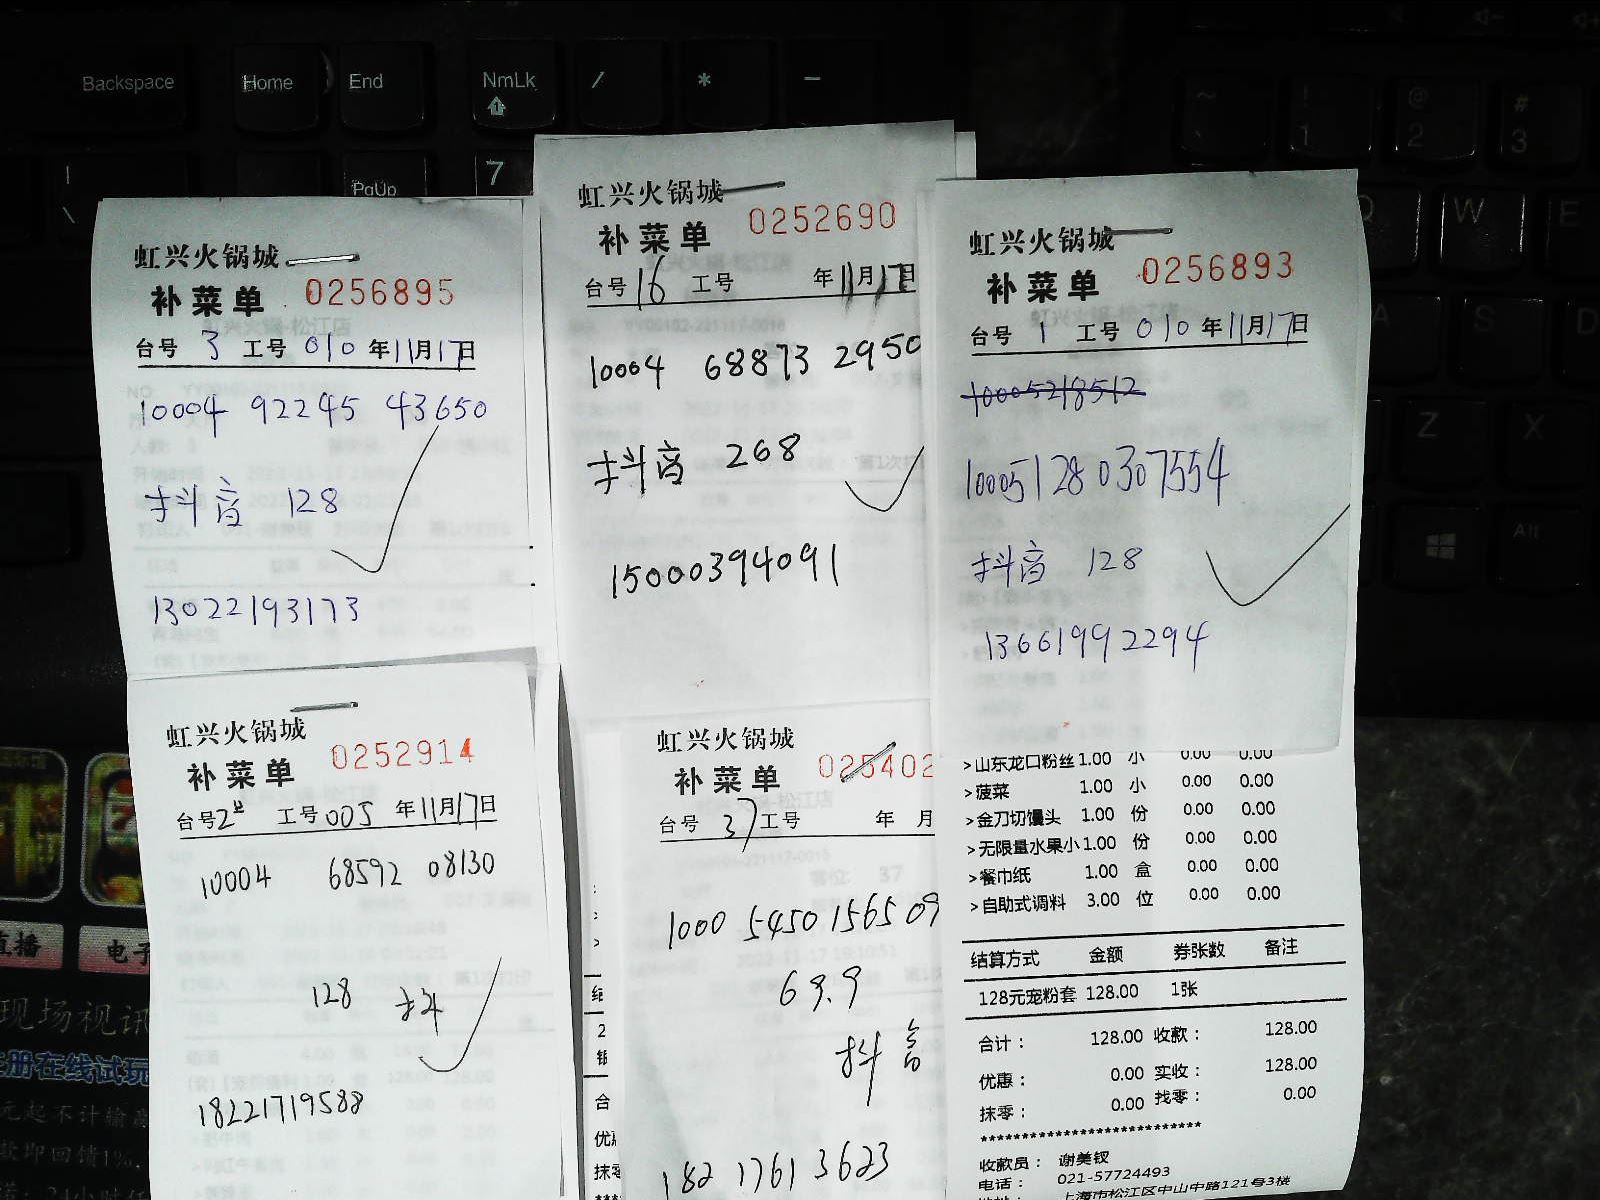 Backspace
Home
End
NmLk
/
*
-
7
PgUp
!
1
@
2
#
3
W
E
A
S
D
Z
X
Alt
虹兴火锅城
补菜单 0256895
台号 3 工号 010 年11月17日
10004 92245 43650
抖音 128
13022193173
虹兴火锅城
补菜单 0252690
台号 16 工号 年11月17日
10004 68873 2950
抖音 268
15000394091
虹兴火锅城
补菜单 0256893
台号 1 工号 010 年11月17日
10005218512
10005128 0307554
抖音 128
13661992294
虹兴火锅城
补菜单 0252914
台号2 工号005 年11月17日
10004 68592 08130
128 抖
18221719588
虹兴火锅城
补菜单 025402
台号 37 工号 年 月
1000 5450 1565 09
69.9
抖音
182 1761 3623
>山东龙口粉丝 1.00 小 0.00 0.00
>菠菜 1.00 小 0.00 0.00
>金刀切馒头 1.00 份 0.00 0.00
>无限量水果小 1.00 份 0.00 0.00
>餐巾纸 1.00 盒 0.00 0.00
>自助式调料 3.00 位 0.00 0.00
结算方式 金额 券张数 备注
128元宠粉套 128.00 1张
合计： 128.00 收款： 128.00
优惠： 0.00 实收： 128.00
抹零： 0.00 找零： 0.00
***************************
收款员： 谢美钗
电话： 021-57724493
上海市松江区中山中路121号3楼
直播
电子
现场视讯
册在线试玩
元起不计输赢
款即回馈1%.